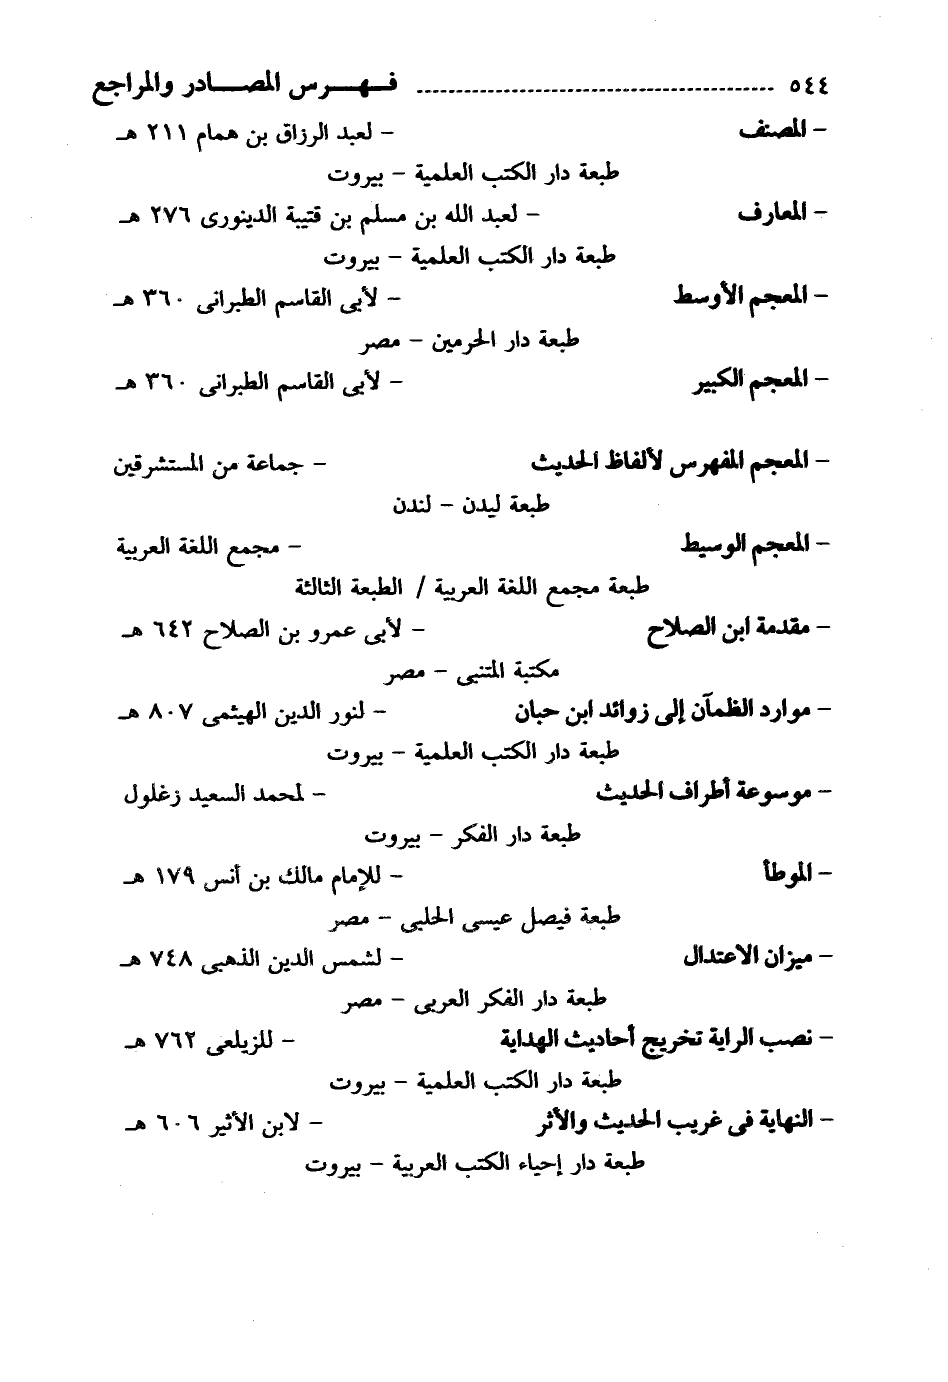 ٥٤٤ ---------------------------------------- فهرس المصادر والمراجع
- المصنف - لعبد الرزاق بن همام ٢١١ هـ
طبعة دار الكتب العلمية - بيروت
- المعارف - لعبد الله بن مسلم بن قتيبة الدينورى ٢٧٦ هـ
طبعة دار الكتب العلمية - بيروت
- المعجم الأوسط - لأبى القاسم الطبرانى ٣٦٠ هـ
طبعة دار الحرمين - مصر
- المعجم الكبير - لأبى القاسم الطبرانى ٣٦٠ هـ
- المعجم المفهرس لألفاظ الحديث - جماعة من المستشرقين
طبعة ليدن - لندن
- المعجم الوسيط - مجمع اللغة العربية
طبعة مجمع اللغة العربية / الطبعة الثالثة
- مقدمة ابن الصلاح - لأبى عمرو بن الصلاح ٦٤٢ هـ
مكتبة المتنبى - مصر
- موارد الظمآن إلى زوائد ابن حبان - لنور الدين الهيثمى ٨٠٧ هـ
طبعة دار الكتب العلمية - بيروت
- موسوعة أطراف الحديث - لمحمد السعيد زغلول
طبعة دار الفكر - بيروت
- الموطأ - للإمام مالك بن أنس ١٧٩ هـ
طبعة فيصل عيسى الحلبى - مصر
- ميزان الاعتدال - لشمس الدين الذهبى ٧٤٨ هـ
طبعة دار الفكر العربى - مصر
- نصب الراية تخريج أحاديث الهداية - للزيلعى ٧٦٢ هـ
طبعة دار الكتب العلمية - بيروت
- النهاية فى غريب الحديث والأثر - لابن الأثير ٦٠٦ هـ
طبعة دار إحياء الكتب العربية - بيروت